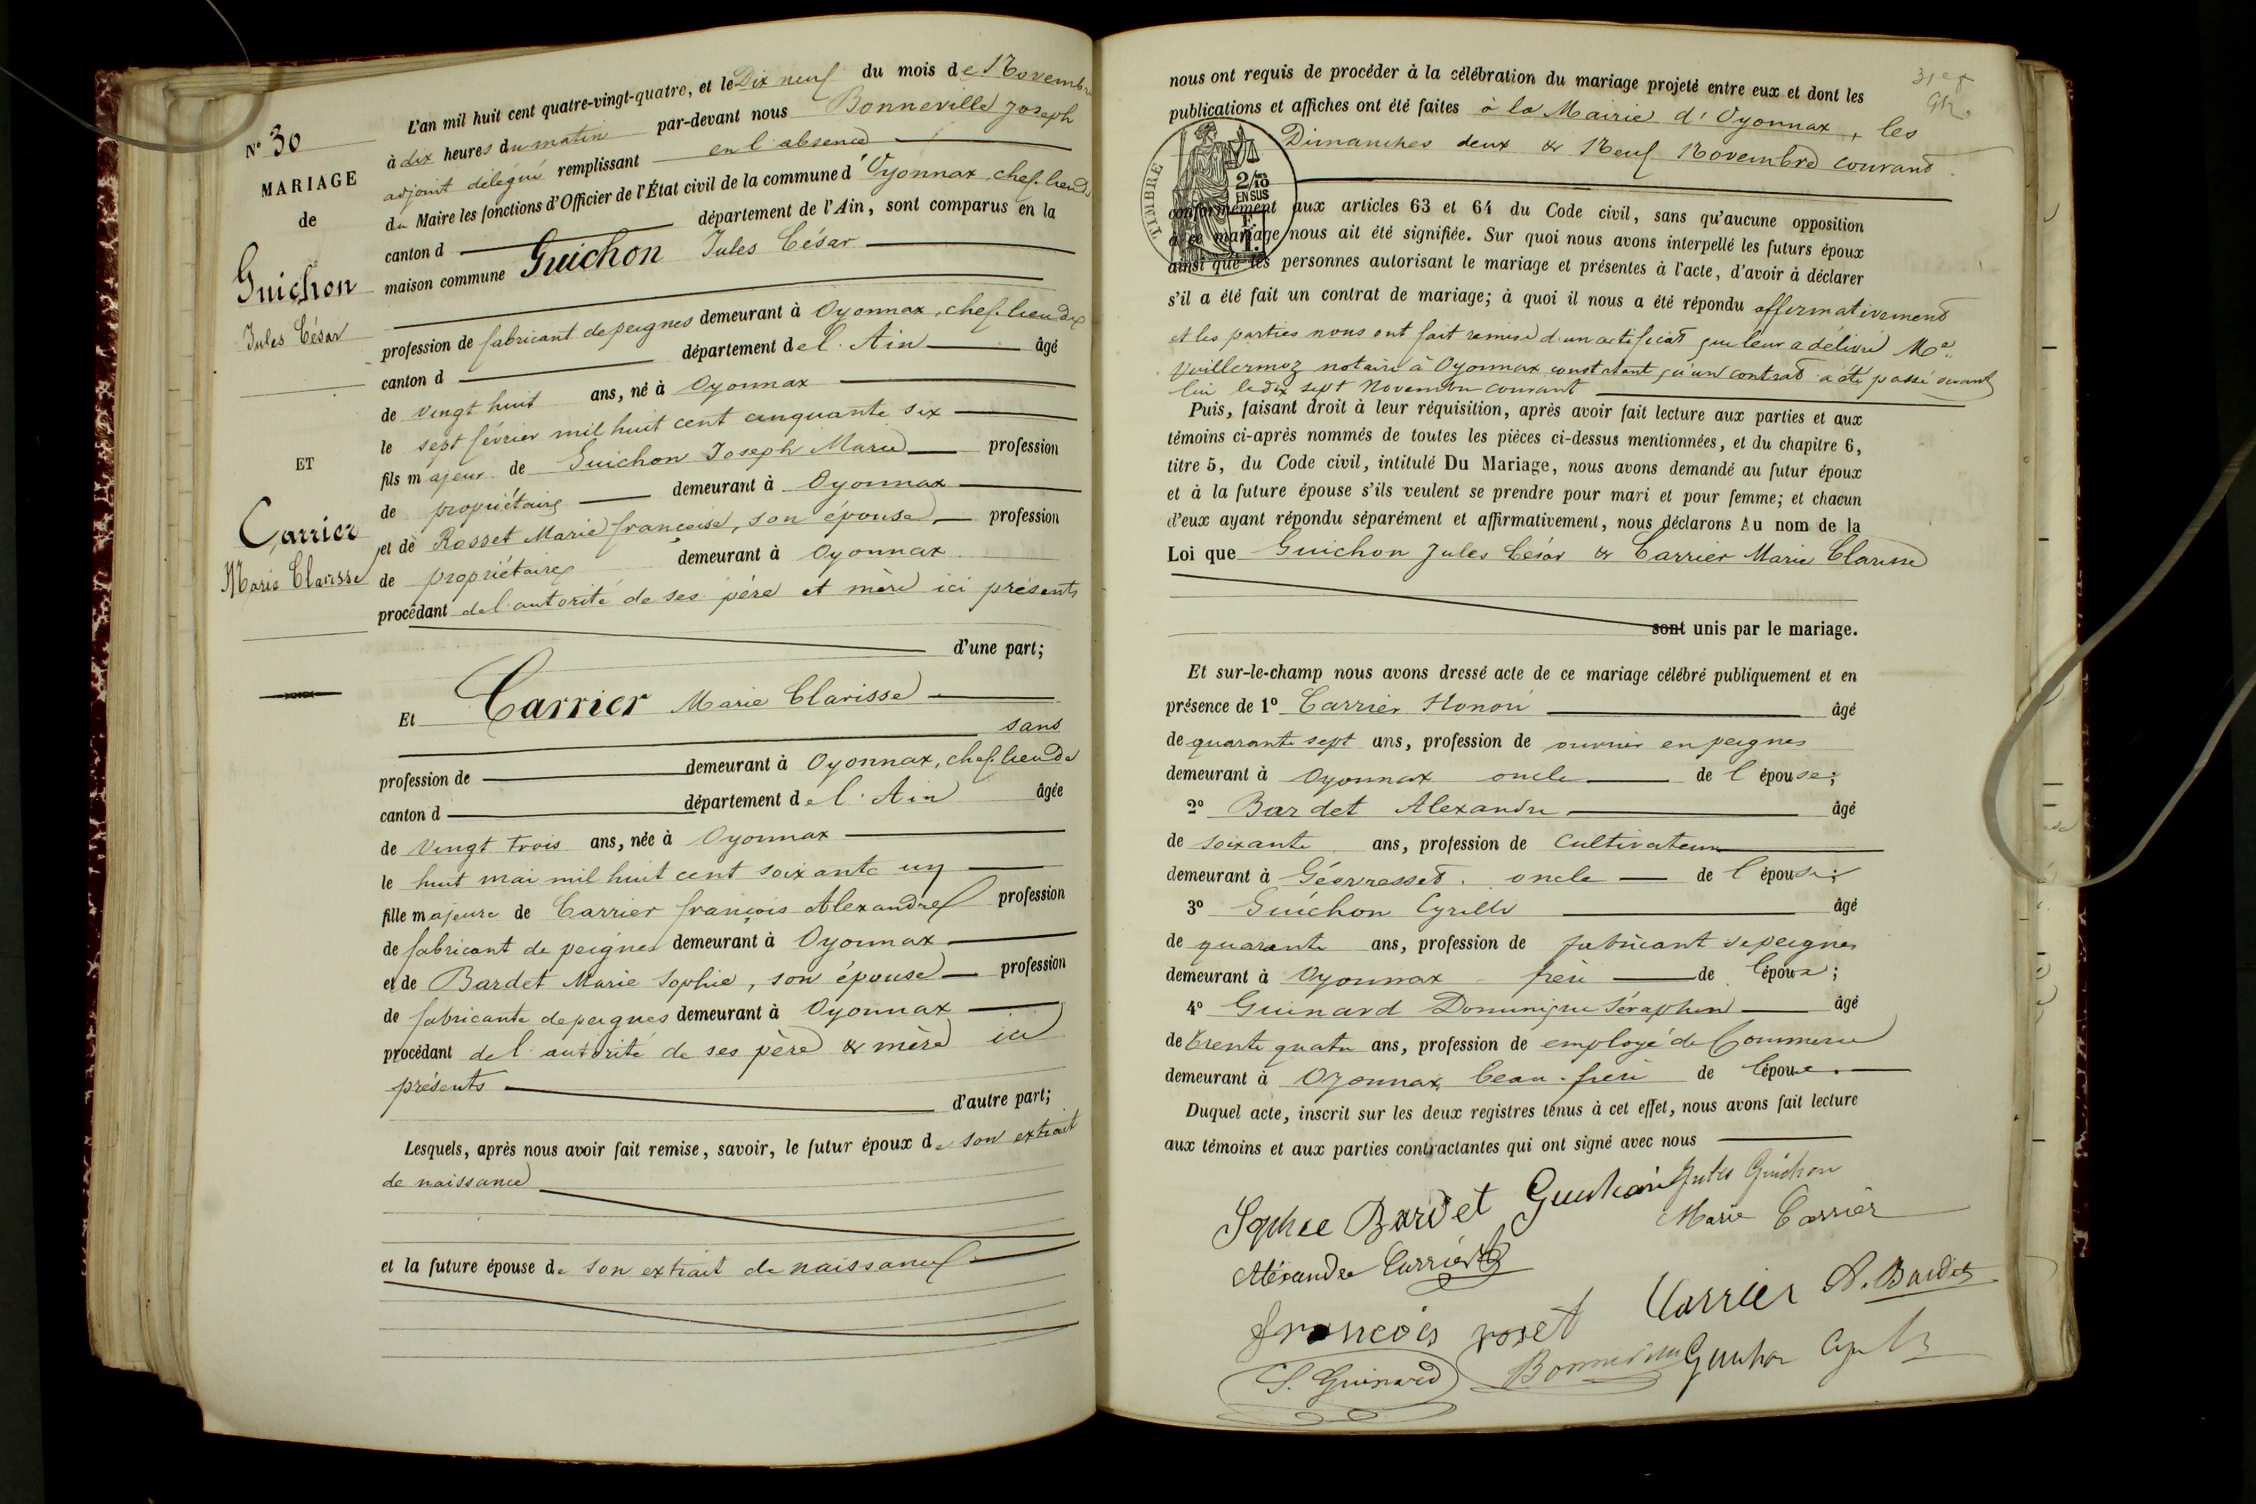 L'an mil huit cent quatre-vingt-quatre, et le Dix neuf du mois de Novembre
à dix heures du matin par-devant nous Bonneville Joseph
adjoint délégué remplissant en l'absence
du Maire les fonctions d'Officier de l'État civil de la commune d'Oyonnax, chef lieu de
canton d département de l'Ain, sont comparus en la
maison commune Guichon Jules César
profession de fabricant de peignes demeurant à Oyonnax, chef lieu de
canton d département de l'Ain âgé
de vingt huit ans, né à Oyonnax
le sept février mil huit cent cinquante six
fils majeur de Guichon Joseph Marie profession
de propriétaire demeurant à Oyonnax
et de Rosset Marie françoise, son épouse, profession
de propriétaire demeurant à Oyonnax
procédant de l'autorité de ses père et mère ici présents
d'une part;
Et Carrier Marie Clarisse
sans
profession de demeurant à Oyonnax, chef lieu de
canton d département de l'Ain âgée
de vingt trois ans, née à Oyonnax
le huit mai mil huit cent soixante un
fille majeure de Carrier françois Alexandre profession
de fabricant de peignes demeurant à Oyonnax
et de Bardet Marie Sophie, son épouse profession
de fabricante de peignes demeurant à Oyonnax
procédant de l'autorité de ses père & mère ici
présents
d'autre part;
Lesquels, après nous avoir fait remise, savoir, le futur époux de son extrait
de naissance
et la future épouse de son extrait de naissance
N° 30
MARIAGE
de
Guichon
Jules César
ET
Carrier
Marie Clarisse
nous ont requis de procéder à la célébration du mariage projeté entre eux et dont les
publications et affiches ont été faites à la Mairie d'Oyonnax, les
Dimanches deux & Neuf Novembre courant
TIMBRE
2/10
EN SUS
conformément aux articles 63 et 64 du Code civil, sans qu'aucune opposition
à ce mariage nous ait été signifiée. Sur quoi nous avons interpellé les futurs époux
ainsi que les personnes autorisant le mariage et présentes à l'acte, d'avoir à déclarer
s'il a été fait un contrat de mariage; à quoi il nous a été répondu affirmativement
et les parties nous ont fait remise d'un certificat que leur a délivré Me
Vuillermoz notaire à Oyonnax constatant qu'un contrat a été passé devant
lui le dix sept Novembre courant
Puis, faisant droit à leur réquisition, après avoir fait lecture aux parties et aux
témoins ci-après nommés de toutes les pièces ci-dessus mentionnées, et du chapitre 6,
titre 5, du Code civil, intitulé Du Mariage, nous avons demandé au futur époux
et à la future épouse s'ils veulent se prendre pour mari et pour femme; et chacun
d'eux ayant répondu séparément et affirmativement, nous déclarons Au nom de la
Loi que Guichon Jules César & Carrier Marie Clarisse
sont unis par le mariage.
Et sur-le-champ nous avons dressé acte de ce mariage célébré publiquement et en
présence de 1° Carrier Honoré âgé
de quarante sept ans, profession de ouvrier en peignes
demeurant à Oyonnax oncle de l'épouse;
2° Bardet Alexandre âgé
de soixante ans, profession de cultivateur
demeurant à Géovresset. oncle de l'épouse;
3° Guichon Cyrille âgé
de quarante ans, profession de fabricant de peignes
demeurant à Oyonnax frère de l'époux;
4° Guinard Dominique Séraphin âgé
de trente quatre ans, profession de employé de Commerce
demeurant à Oyonnax beau-frère de l'époux.
Duquel acte, inscrit sur les deux registres tenus à cet effet, nous avons fait lecture
aux témoins et aux parties contractantes qui ont signé avec nous
Sophie Bardet Guichon Jules Guichon
Marie Carrier
Alexandre Carrier
Carrier A. Bardet
françois roset
S. Guinard Bonneville Guichon